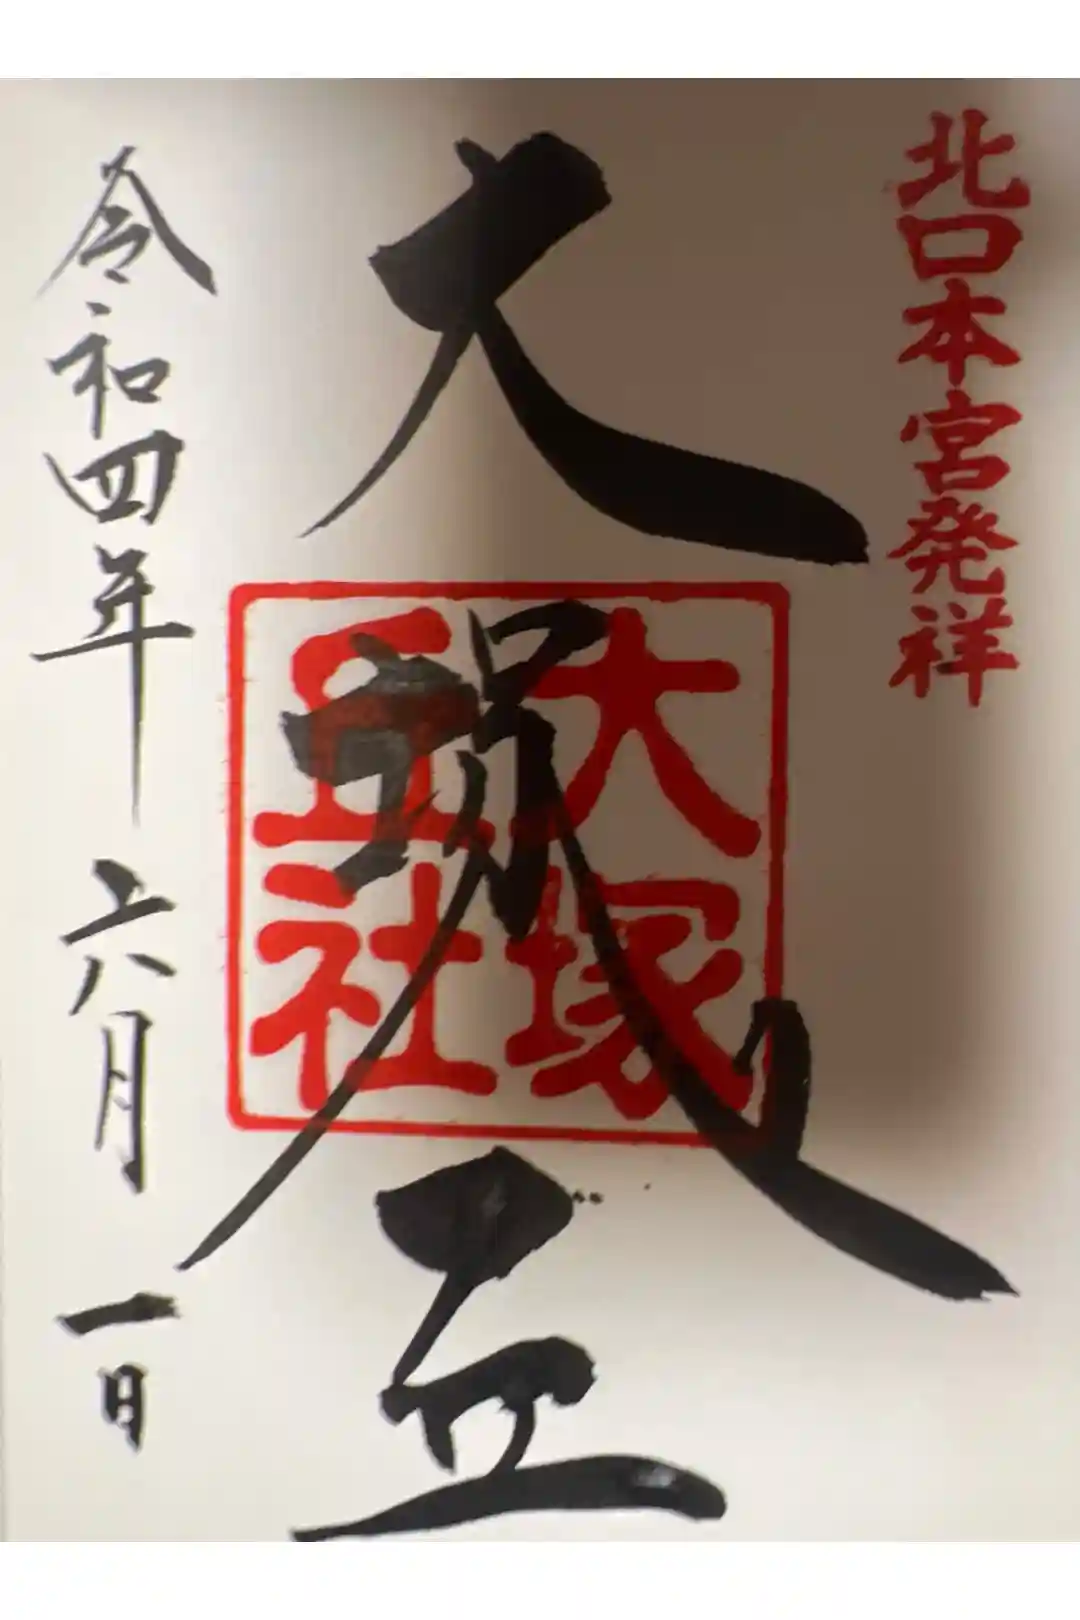 北口本宮発祥
大塚丘
大塚
丘社
令和四年六月一日